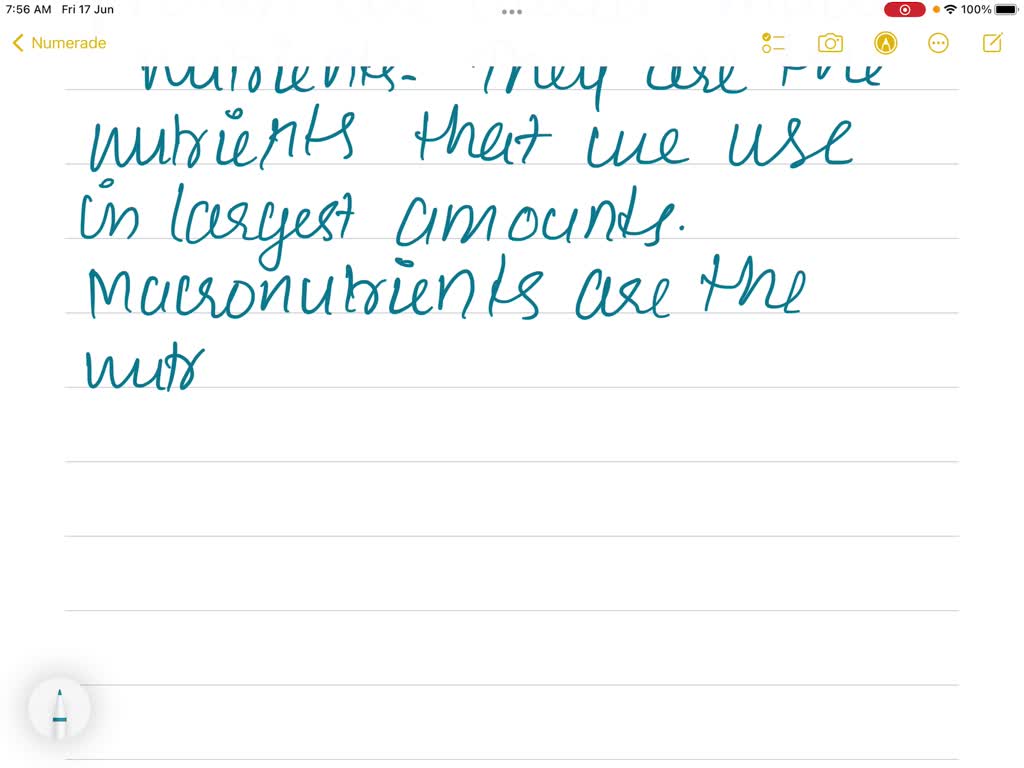 7:56 AM Fri 17 Jun
100%
Numerade
nutrients. They are the
nutrients that we use
in largest amounts.
Macronutrients are the
nutr